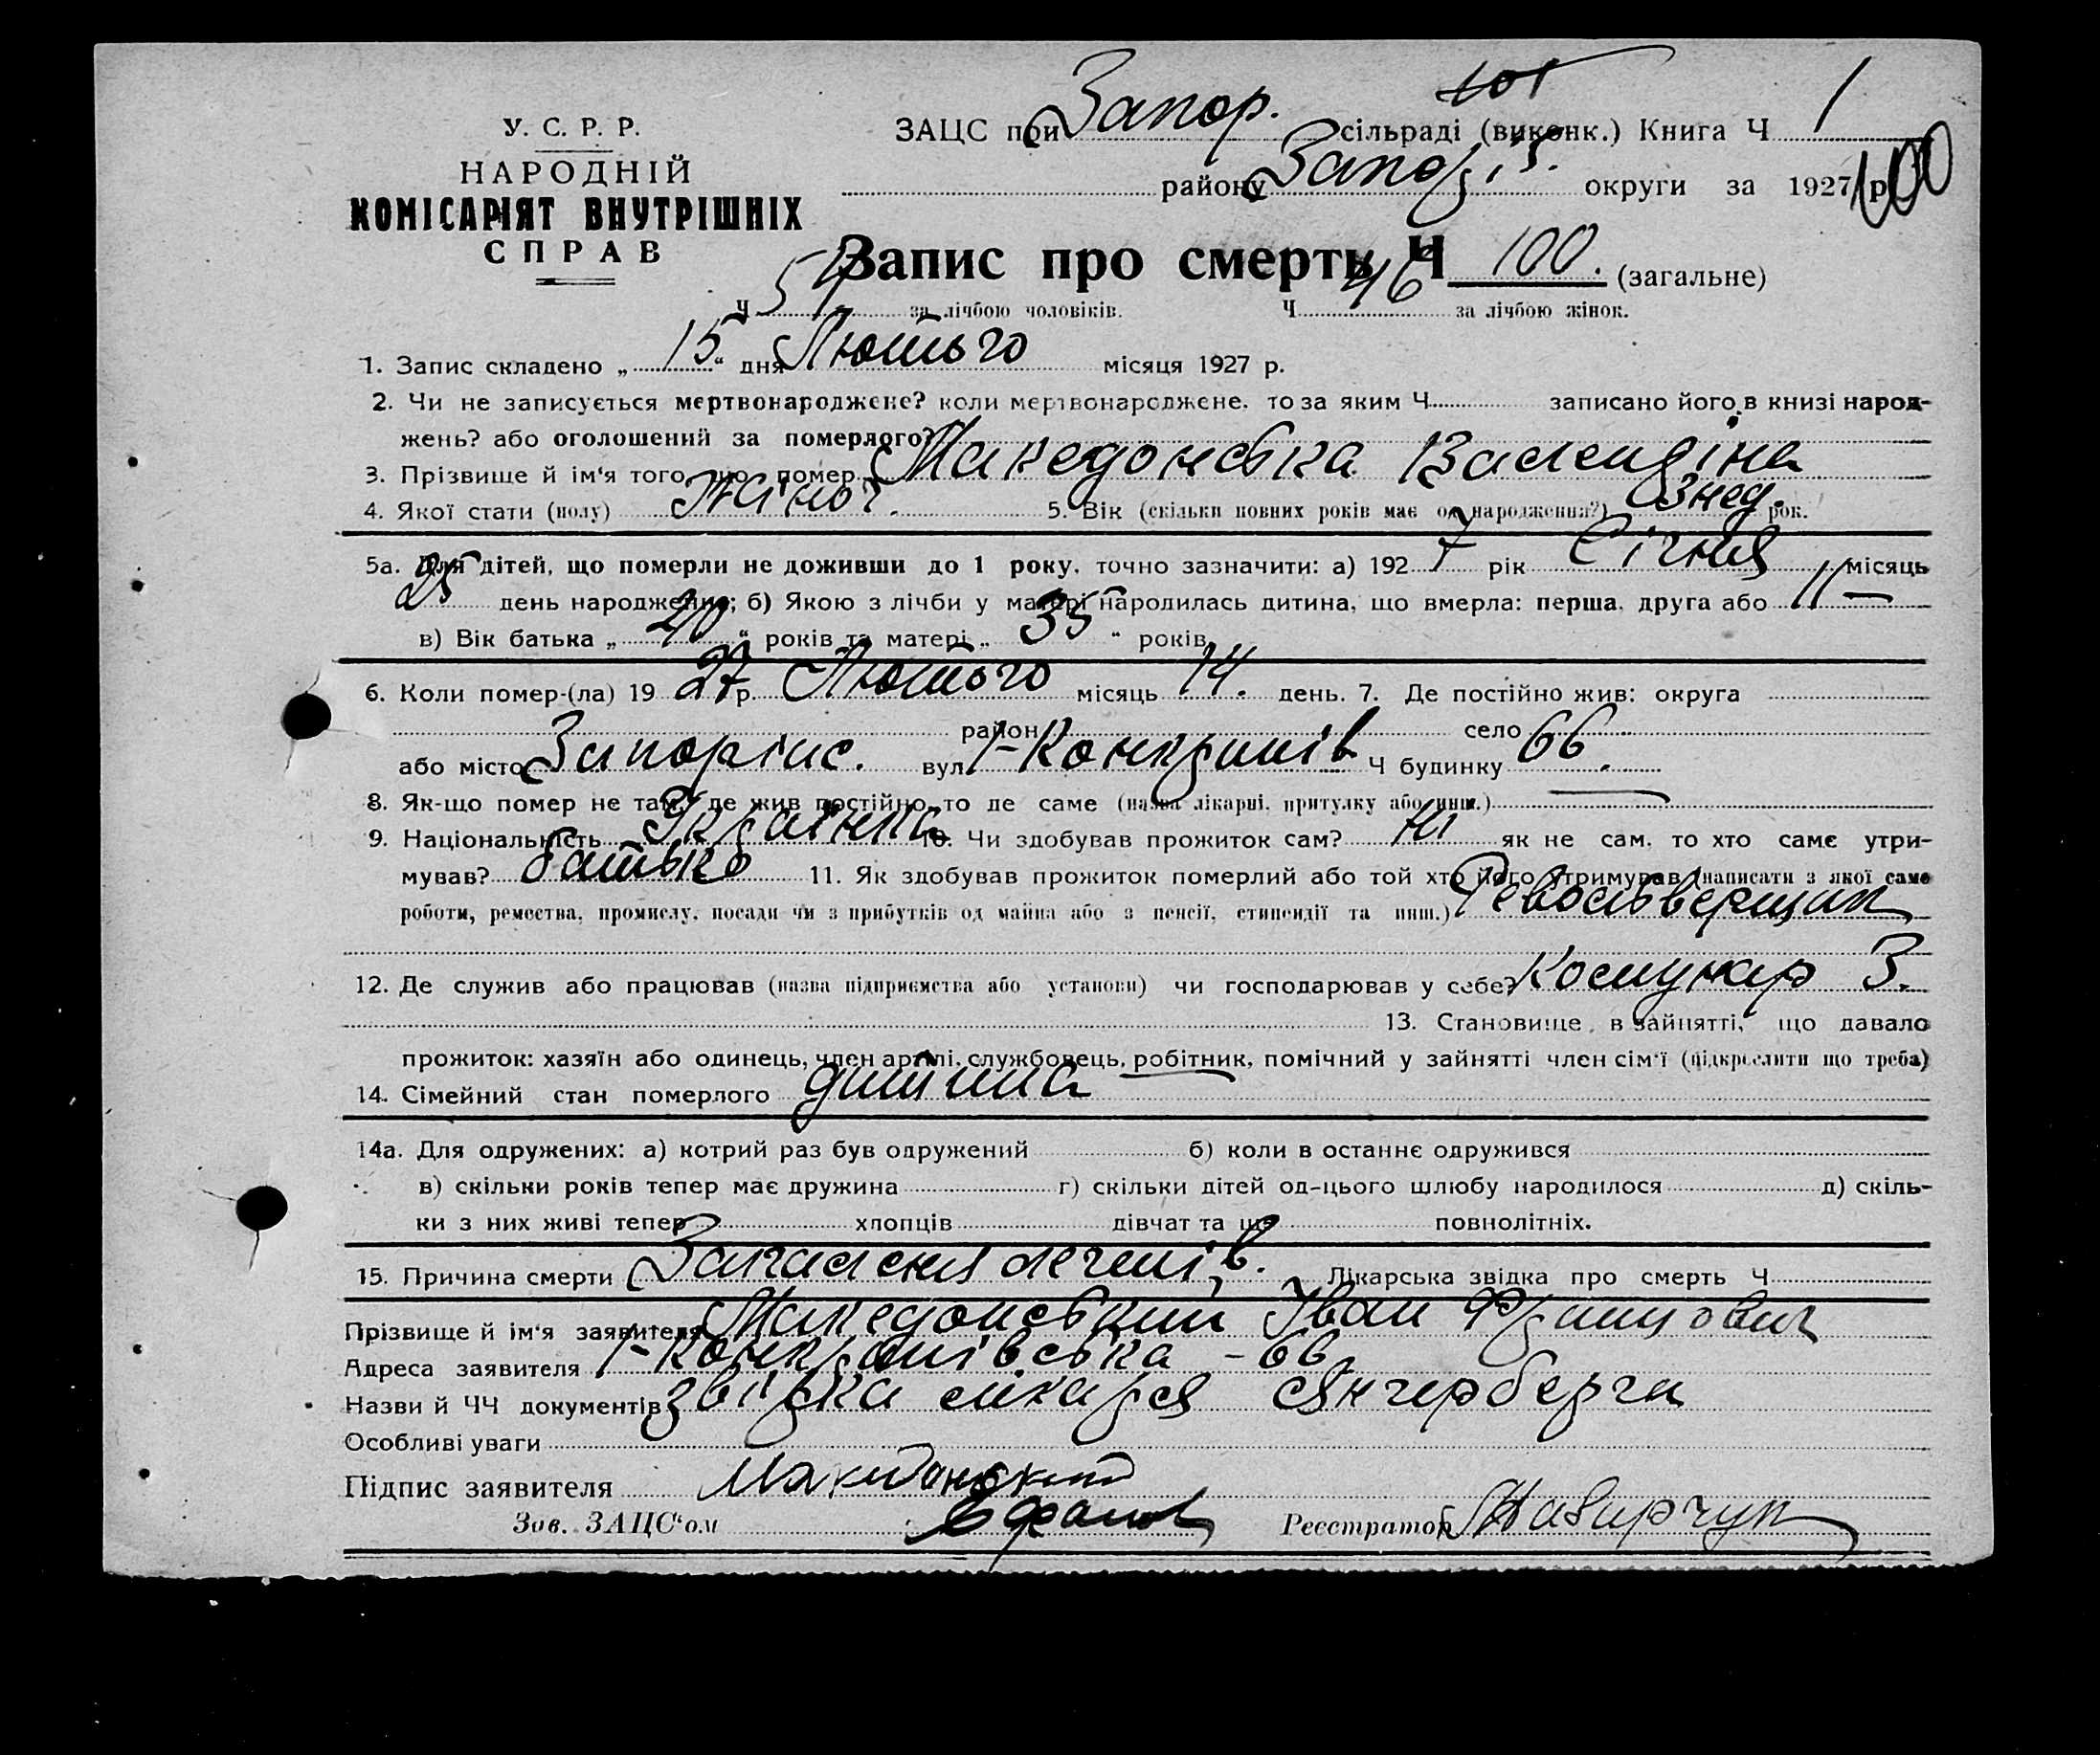 У. С. Р. Р.
НАРОДНІЙ
КОМІСАРІЯТ ВНУТРІШНІХ
СПРАВ
ЗАЦС при Запор. сільраді (виконк.) Книга Ч 1
району Запоріз. округи за 1927 р. 100
Запис про смерть Ч 100. (загальне)
Ч 54 за лічбою чоловіків. Ч 46 за лічбою жінок.
1. Запис складено „ 15 “ дня Лютого місяця 1927 р.
2. Чи не записується мертвонароджене? коли мертвонароджене, то за яким Ч записано його в книзі народ-
жень? або оголошений за померлого?
3. Прізвище й ім'я того, що помер Македонська Валендіна
4. Якої стати (полу) Жіноч. 5. Вік (скільки повних років має од народження?) 3 нед. рок.
5а. Для дітей, що померли не доживши до 1 року, точно зазначити: а) 192 7 рік Січня місяць
25 день народження; б) Якою з лічби у матері народилась дитина, що вмерла: перша, друга або 11 –
в) Вік батька „ 40 “ років та матері „ 35 “ років
6. Коли помер-(ла) 19 27 р. Лютого місяць 14. день. 7. Де постійно жив: округа
район село
або місто Запоріжж. вул. 1- Ч будинку 66.
8. Як-що помер не там, де жив постійно, то де саме (назва лікарні, притулку або инш.)
9. Національність Українка 10. Чи здобував прожиток сам? Ні як не сам, то хто саме утри-
мував? батько 11. Як здобував прожиток померлий або той хто його утримував (написати з якої саме
роботи, ремества, промислу, посади чи з прибутків од майна або з пенсії, стипендії та инш.) Револьверщик
12. Де служив або працював (назва підприємства або установи) чи господарював у себе? Комунар З.
13. Становище, в зайнятті, що давало
прожиток: хазяїн або одинець, член артілі, службовець, робітник, помічний у зайнятті член сім'ї (підкреслити що треба)
14. Сімейний стан померлого дитина
14а. Для одружених: а) котрий раз був одружений б) коли в останнє одружився
в) скільки років тепер має дружина г) скільки дітей од-цього шлюбу народилося д) скіль-
ки з них живі тепер хлопців дівчат та ще повнолітніх.
15. Причина смерти Запалення легенів. Лікарська звідка про смерть Ч
Прізвище й ім'я заявителя Македонський Іван Францович
Адреса заявителя 1- - 66
Назви й ЧЧ документів звідка лікаря
Особливі уваги
Підпис заявителя
Зав. ЗАЦС'ом
Реєстратор